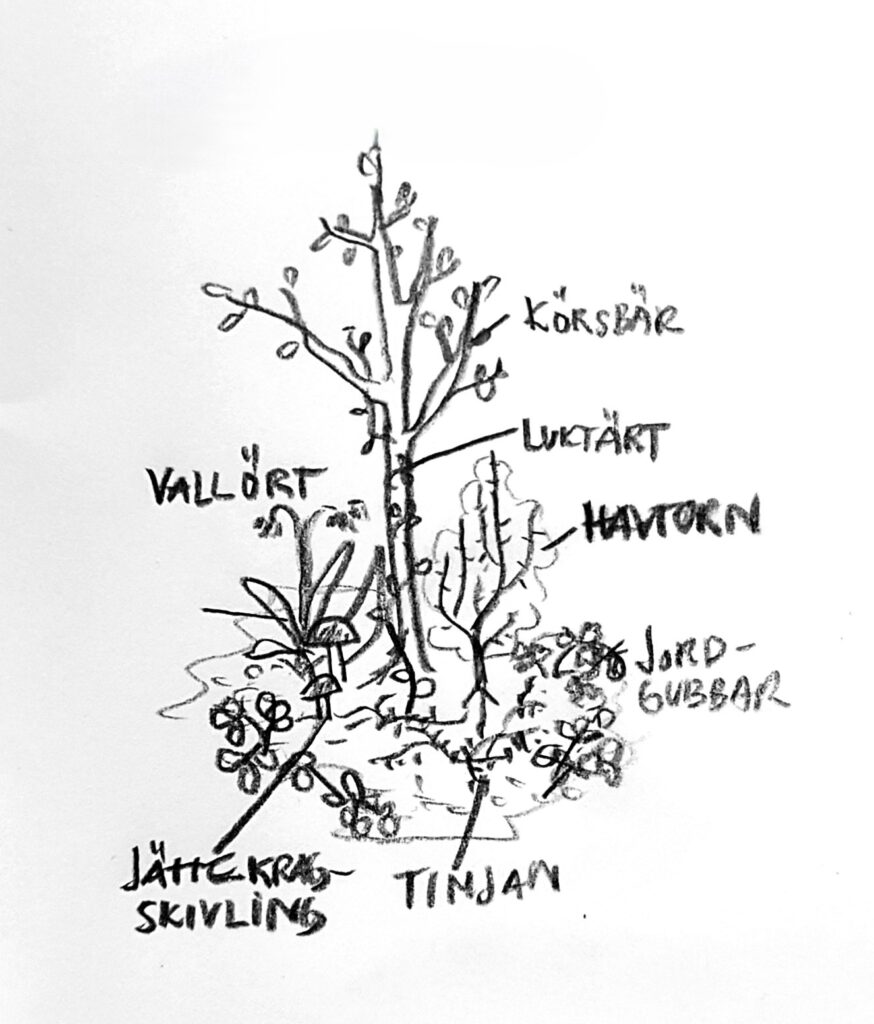 KÖRSBÄR
LUKTÄRT
VALLÖRT
HAVTORN
JORD-
GUBBAR
JÄTTEKRAG-
SKIVLING
TINJAN